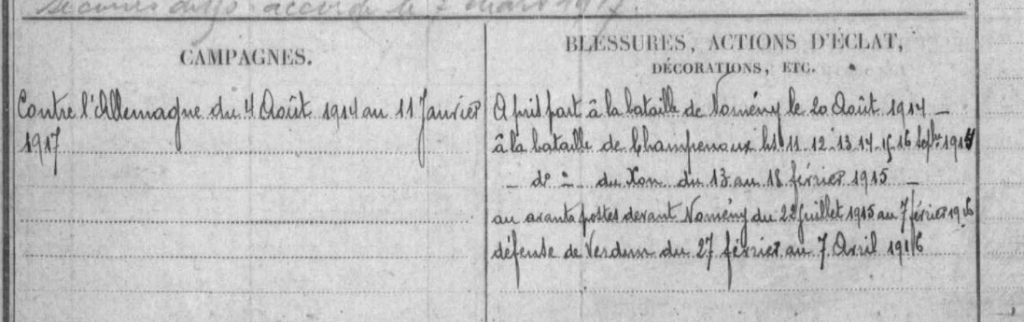 secours de 150 accordé le 7 mars 1917.
CAMPAGNES.
Contre l'Allemagne du 4 Août 1914 au 11 Janvier
1917
BLESSURES, ACTIONS D'ÉCLAT,
DÉCORATIONS, ETC.
A pris part à la bataille de Nomény le 20 Août 1914 –
à la bataille de Champenoux les 11-12-13-14-15-16 Septbre 1914
– do – du Xon du 13 au 18 février 1915 –
au avants postes devant Nomény du 22 Juillet 1915 au 7 février 1916
défense de Verdun du 27 février au 7 Avril 1916